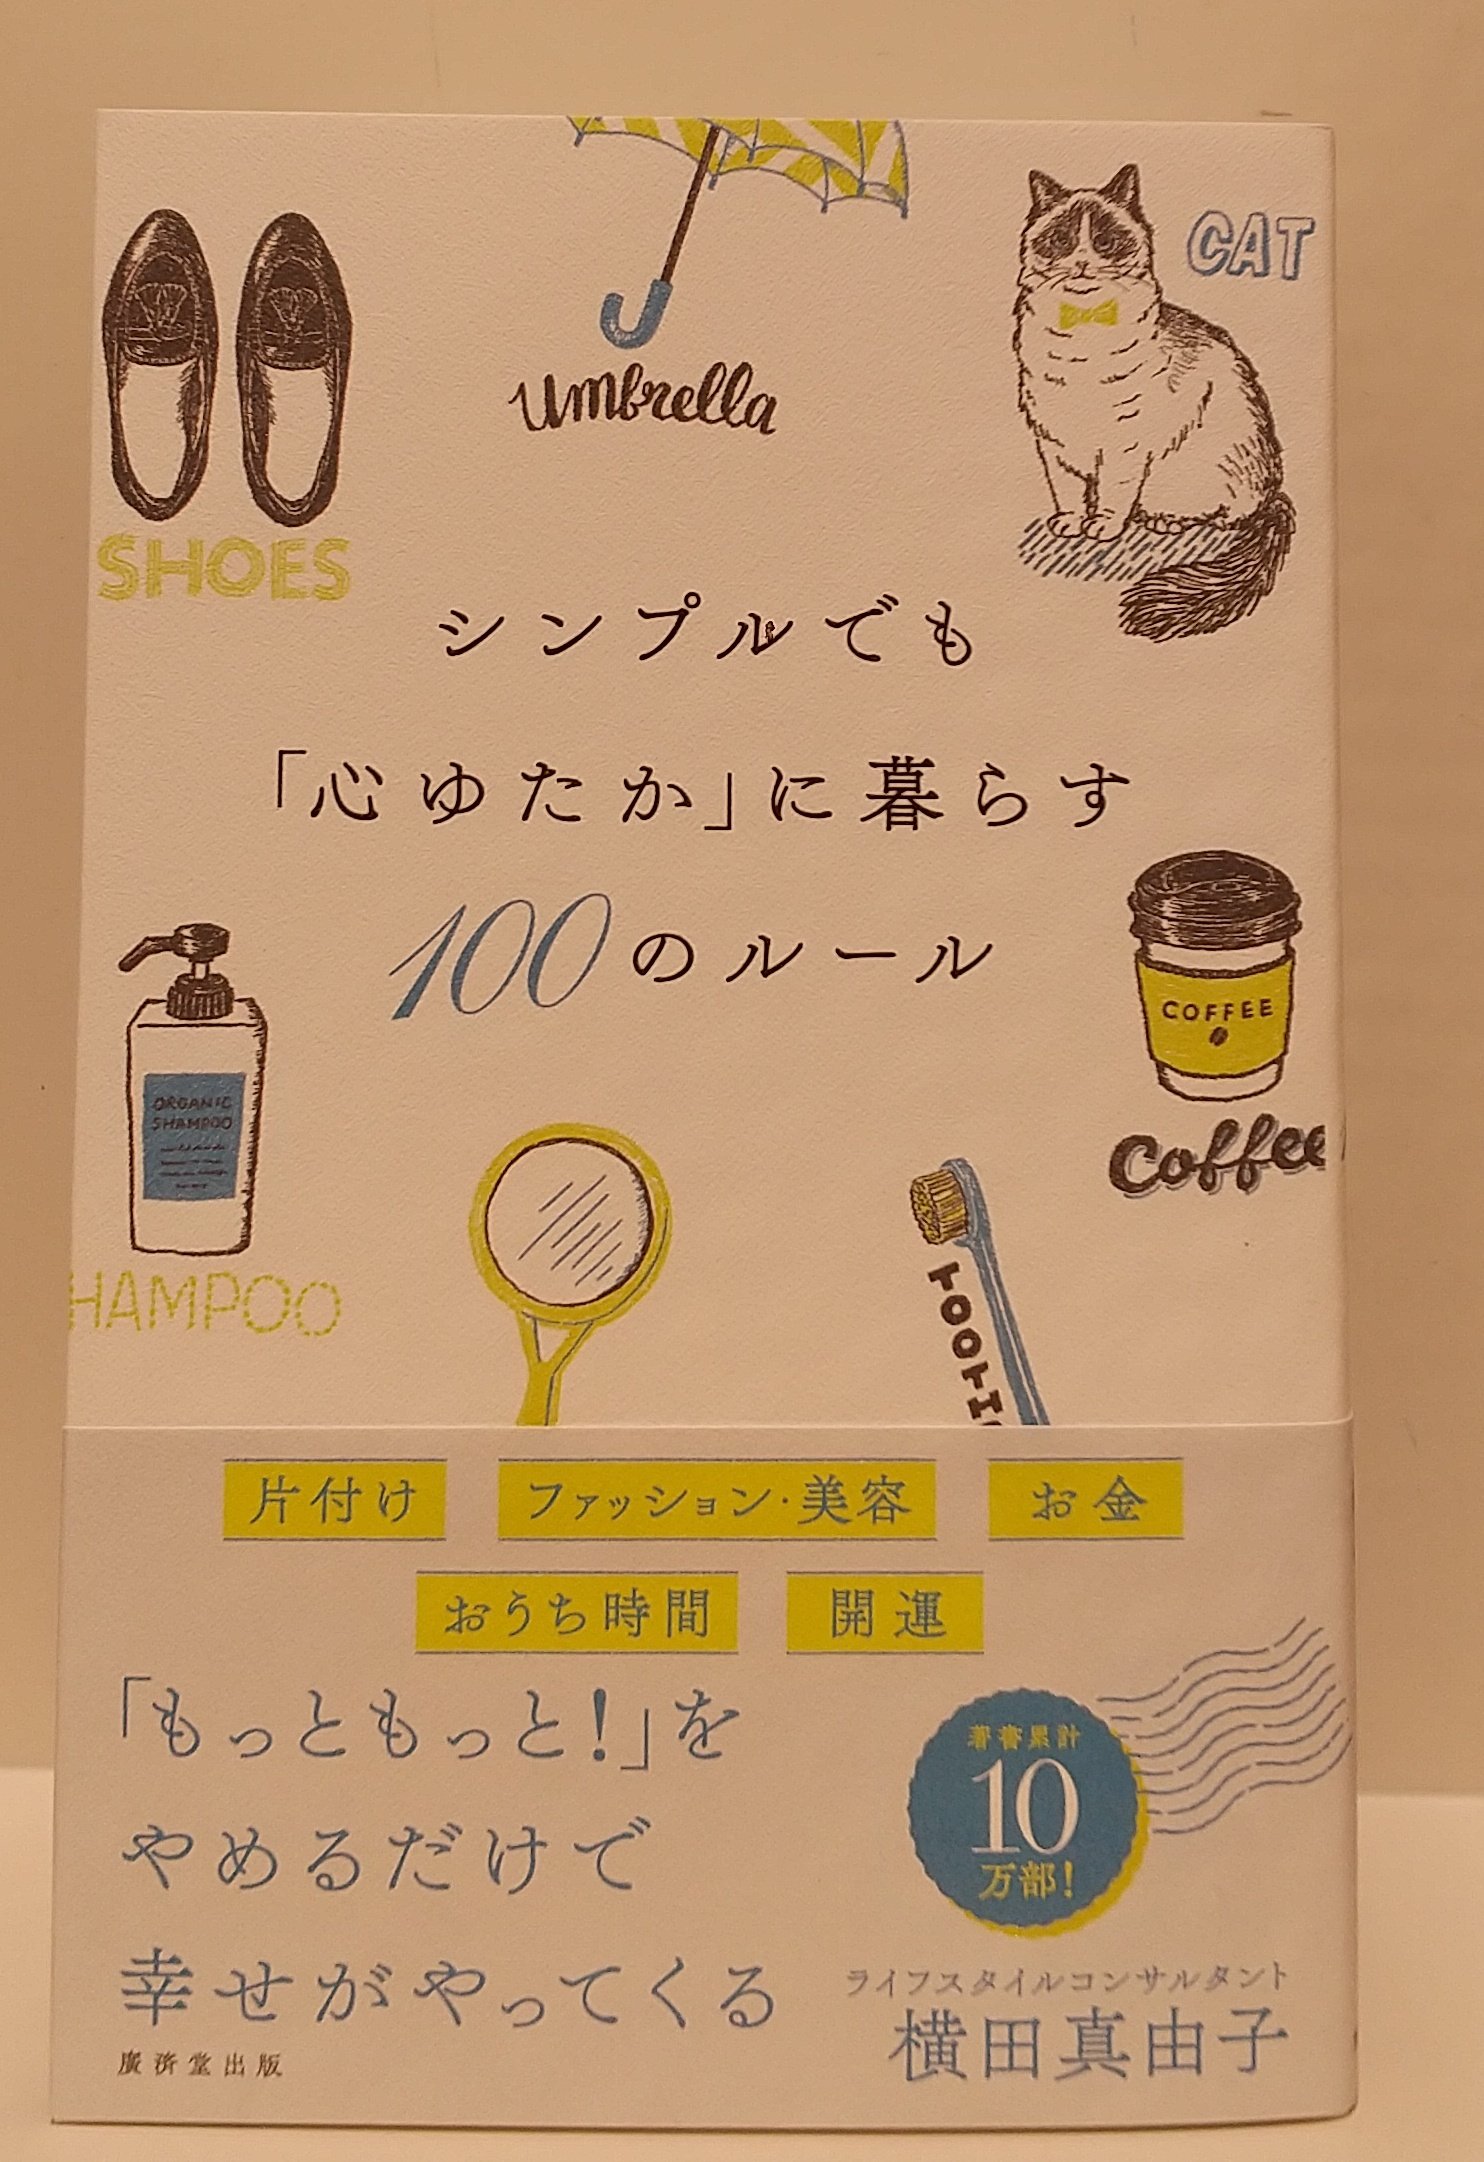 umbrella
CAT
SHOES
シンプルでも
「心ゆたか」に暮らす
100のルール
COFFEE
Coffee
ORGANIC
SHAMPOO
HAMPOO
TOOTH
片付け ファッション・美容 お金
おうち時間 開運
「もっともっと!」を
やめるだけで
幸せがやってくる
著書累計
10
万部!
ライフスタイルコンサルタント
横田真由子
廣済堂出版